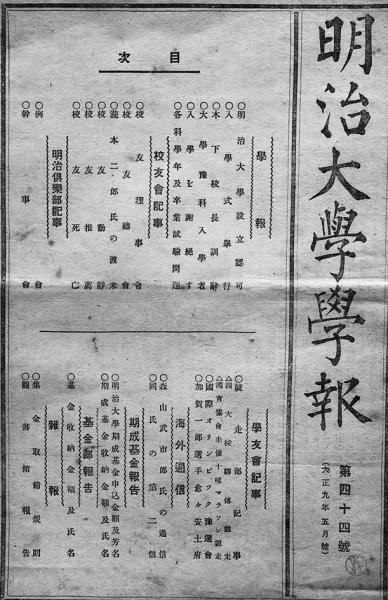 明治大學學報
第四十四號
(大正九年五月號)
目次
學報
○明治大學設立認可
○入學式擧行
○木下校長訓辭
○大學豫科入學者
○入學を謝絶す
各科學年及卒業試驗問題
校友會記事
○校友理事會
○校友總會
○瀧本二郎氏の渡米
○校友動靜
○校友推薦
○校友死亡
明治倶樂部記事
○例會
○幹事會
學友會記事
○競走部記事
△四大校驛傳競走
△體育協會主催十種マラソン競走
○國際オリンピック豫選會
○加賀一郎選手愈々安土府
海外通信
○森山武市郎氏の通信
○同氏の第二信
期成基金報告
○明治大學期成基金申込金額及芳名
○期成基金收納金額及氏名
基金部報告
○基金收納金額及氏名
雜報
○集金取締規則
○圖書館報告